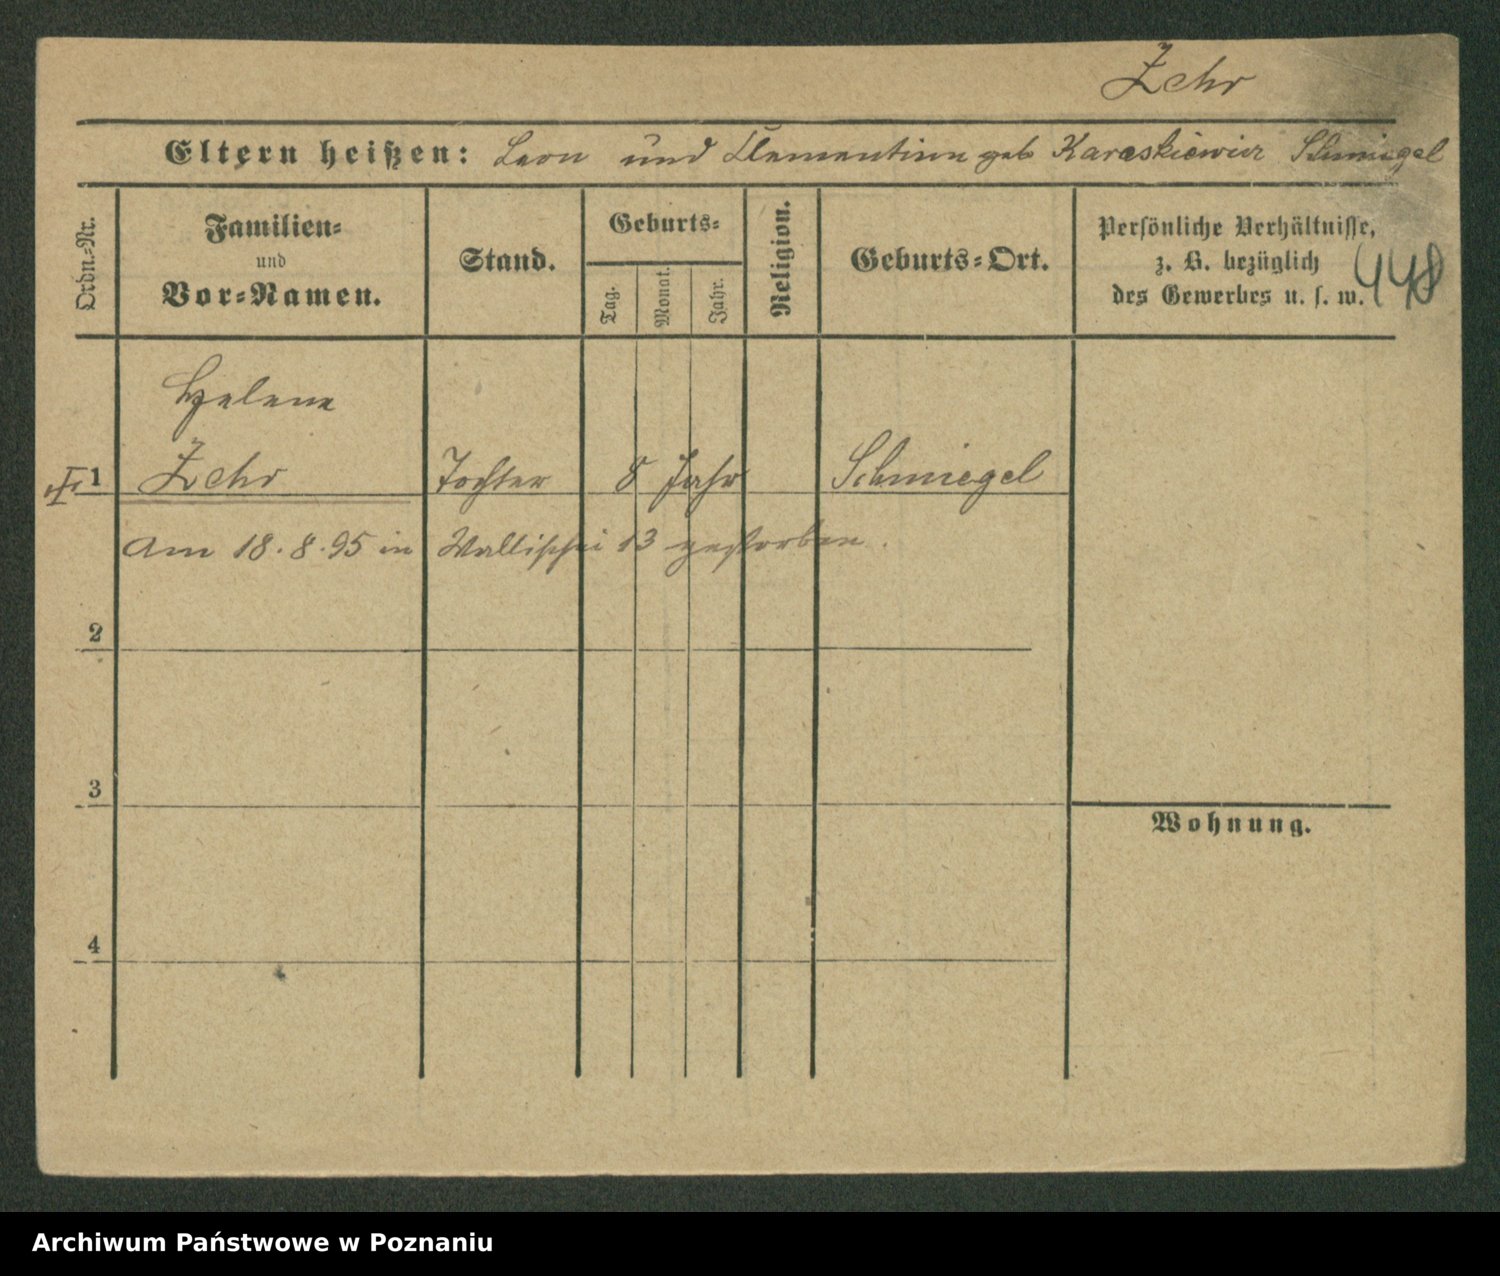 Zehr
Eltern heißen: Leon und Clementine geb Karaskiewicz Schmiegel
Ordn.-Nr.
Familien-
und
Vor-Namen.
Stand.
Geburts-
Tag.
Monat.
Jahr.
Religion.
Geburts-Ort.
Persönliche Verhältnisse,
z. B. bezüglich
des Gewerbes u. s. w.
448
Helene
1 Zehr Tochter 8 Jahr Schmiegel
Am 18.8.95 in Wallischei 13 gestorben.
2
3
Wohnung.
4
Archiwum Państwowe w Poznaniu